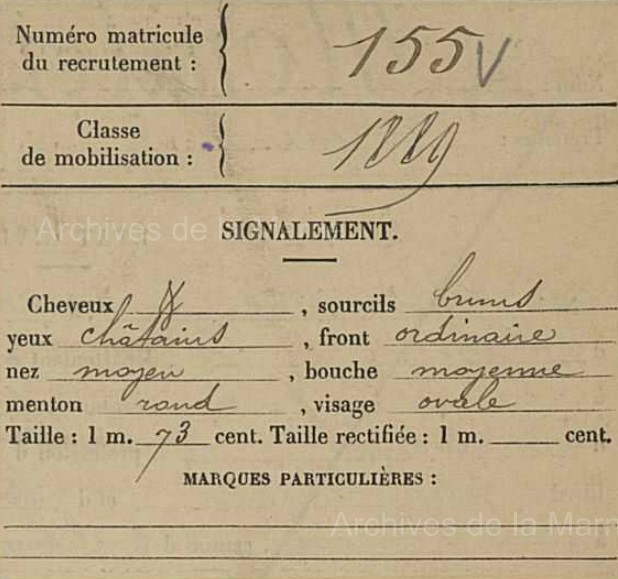 Numéro matricule
du recrutement : 155 V
Classe
de mobilisation : 1889
Archives de la
SIGNALEMENT.
Cheveux & , sourcils bruns
yeux châtains , front ordinaire
nez moyen , bouche moyenne
menton rond , visage ovale
Taille : 1 m. 73 cent. Taille rectifiée : 1 m. cent.
MARQUES PARTICULIÈRES :
Archives de la Marn